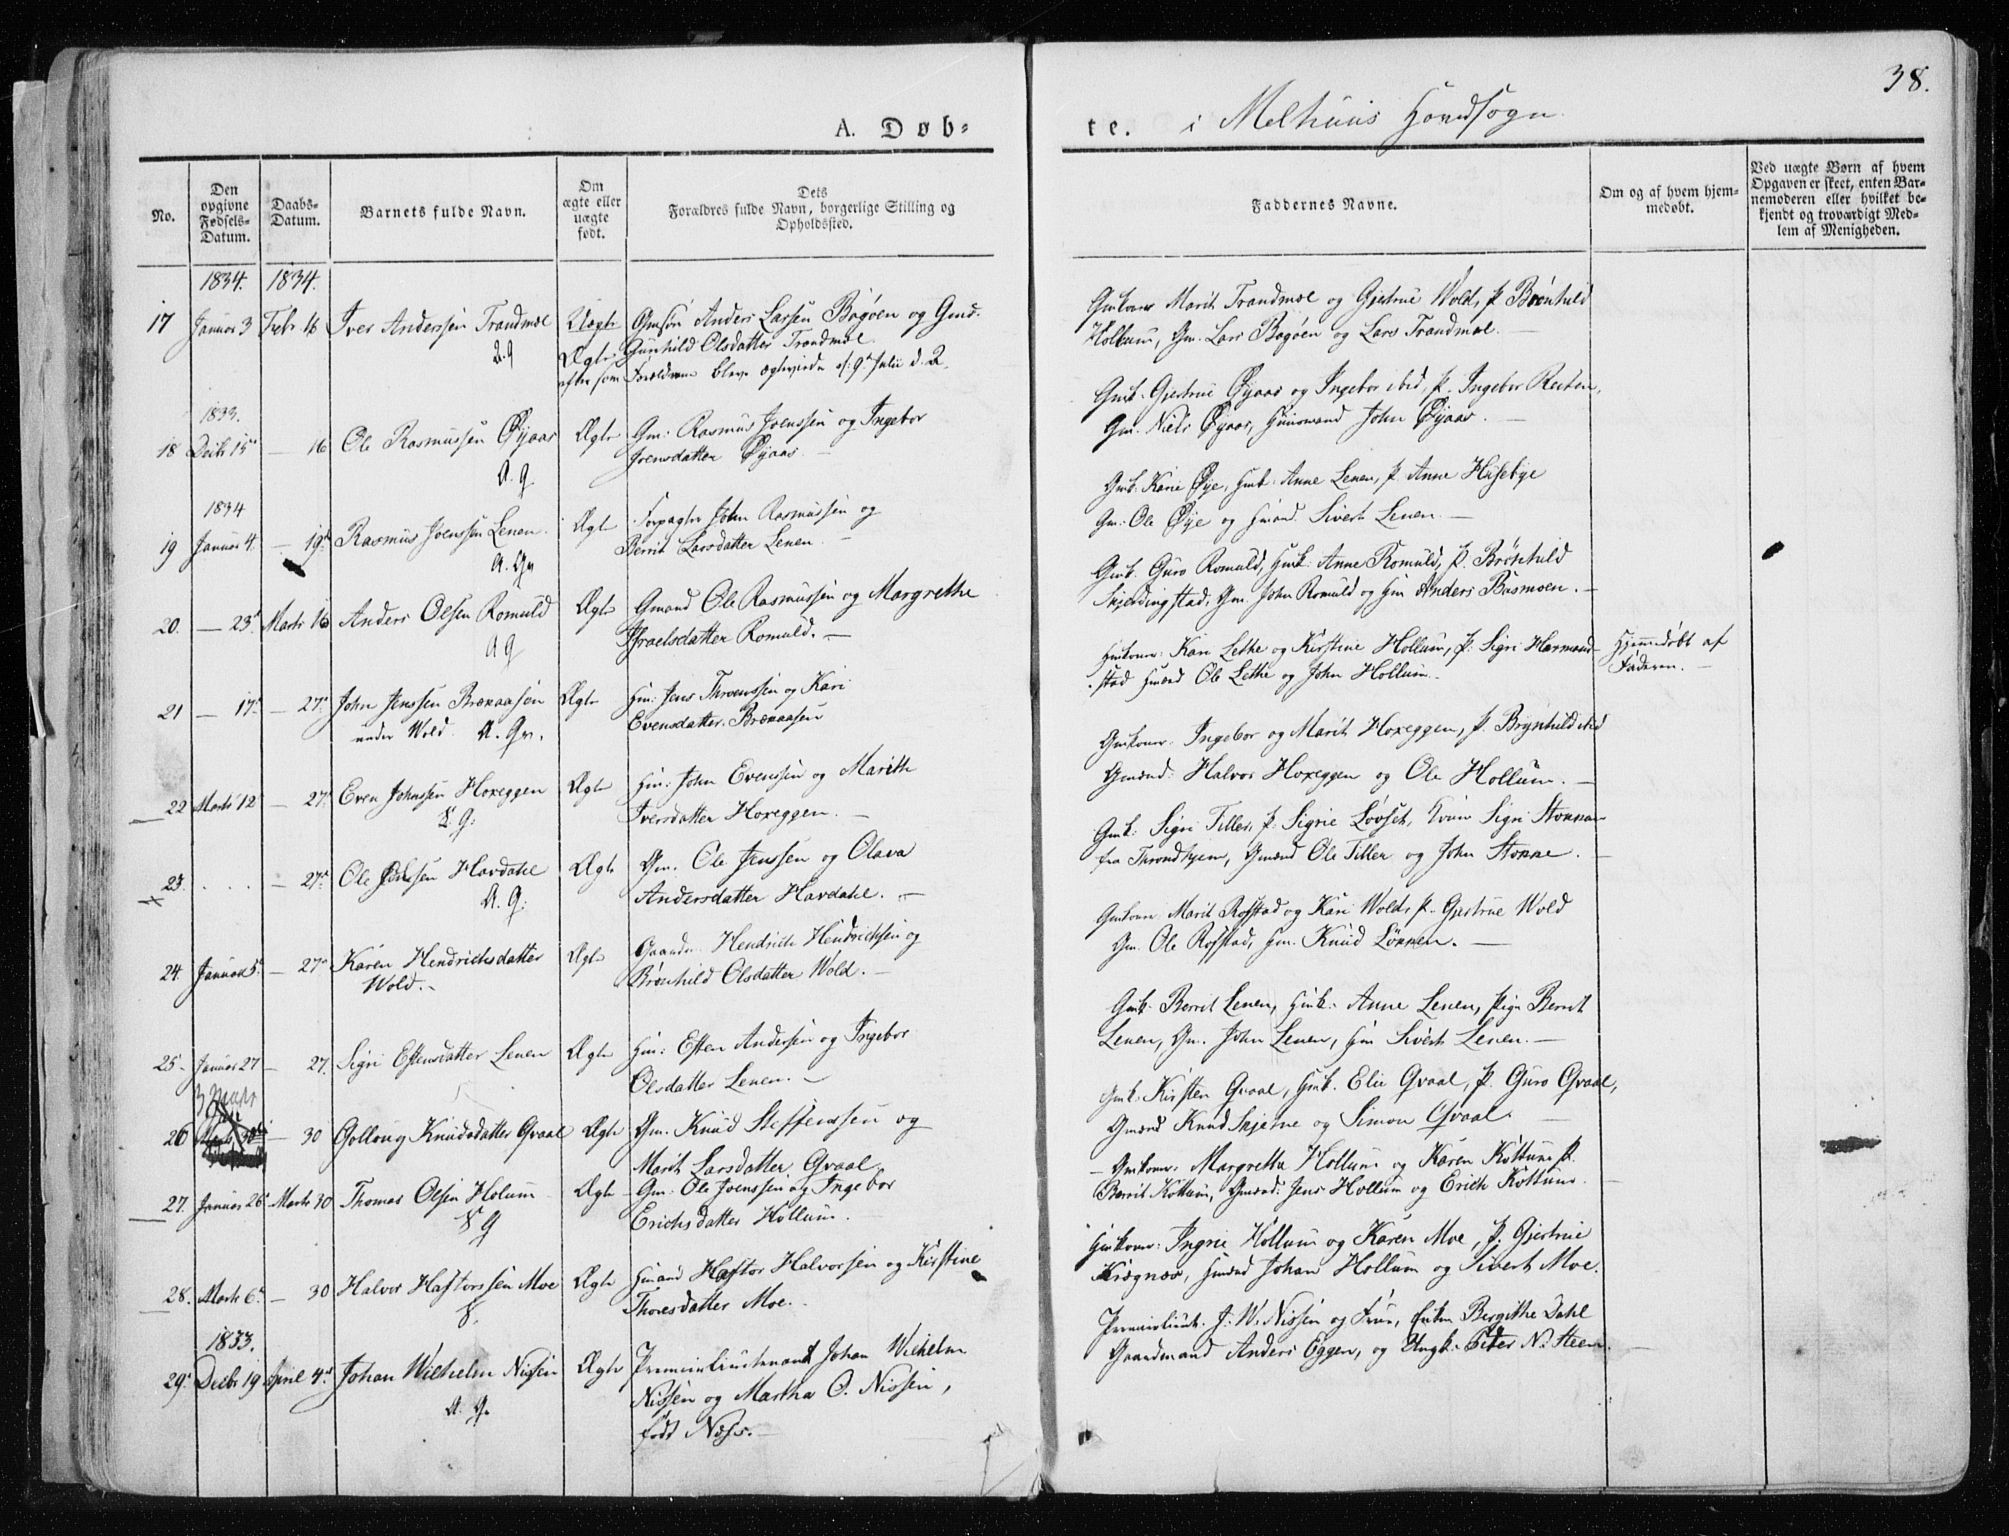 38.
A. Døb-
te. i Melhuus Hovedsogn
No.
Den opgivne Fødsels-Datum.
Daabs-Datum.
Barnets fulde Navn.
Om ægte eller uægte født.
Dets Forældres fulde Navn, borgerlige Stilling og Opholdssted.
Faddernes Navne.
Om og af hvem hjem-medøbt.
Ved uægte Børn af hvem Opgaven er skeet, enten Bar-nemoderen eller hvilket be-kjendt og troværdigt Med-lem af Menigheden.
1834. 1834.
17 Januar 3 Febr 16 Iver Anderssen Trandmoe Uægte Gmsøn Anders Larsen Bagøen og Gmd.
A. G Ægte Gunhild Olsdatter Trandmoe.
efter som Forældrene bleve
Gmkoner Marit Trandmoe og Gjertrue Wold, P. Brønhild
Hollum, Gm. Lars Bagøen og Lars Trandmoe.
1833.
18 Decbr 15 — 16 Ole Rasmussen Øyaas Ægte Gm: Rasmus Joenssen og Ingebor
A. G. Joensdatter Øyaas
Gmk. Gjertrue Øyaas og Ingebor ibid, P. Ingebor Reiten,
Gm. Niels Øyaas, Huusmand John Øyaas.
1834
19 Januar 4. — 19 Rasmus Joenssen Lenen. Ægte Forpagter John Rasmussen og
A. G Berrit Larsdatter Lenen.
Gmk. Karie Øye, Hmk. Anne Lenen, P. Anne Husebye
Gm. Ole Øye og Hmand Sivert Lenen.
20. — 23 Marts 16 Anders Olsen Romuld Ægte Gmand Ole Rasmussen og Margrethe
A G Israelsdatter Romuld.
Gmk. Guro Romuld, Hmk. Anne Romuld, P. Brønhild
Skjerdingstad, Gm. John Romuld og Hm Anders Bosmoen.
21 — 17 — 27 John Jenssen Brækaasen Ægte Hm. Jens Thronssen og Kari
under Wold A. G. Evensdatter Brækaasen
Hmkoner: Kari Lethe og Kirstine Hollum, P. Sigri
stad Hmænd Ole Lethe og John Hollum.
Hjemmedøbt af
Faderen.
22 Marts 12 — 27 Even Johnssen Hoxeggen Ægte Hm: John Evenssen og Marith
G: Iversdatter Hoxeggen.
Gmkoner Ingebor og Marit Hoxeggen, P. Brynhild ibid
Gmænd: Halvor Hoxeggen og Ole Hollum.
23. . . . — 27 Ole Havdahl Ægte Gm. Ole Jenssen og Olava
A. G. Andersdatter Havdahl.
Gmk: Sigri Tiller, P. Sigrie Løvset, Sigri
fra Throndhjem, Gmænd Ole Tiller og John
24. Januar 5. — 27 Karen Hendrichsdatter Ægte Gaardm. Hendrich Hendrichsen og
Wold. Brønhild Olsdatter Wold.
Gmkoner Marit Rofstad og Kari Wold, P. Gjertrue Wold
Gm. Ole Rofstad, Hm. Knud Lønnen.
25 Januar 27 — 27. Sigri Estensdatter Lenen Ægte Hm: Esten Andersen og Ingebor
Olsdatter Lenen.
Gmk. Berrit Lenen, Hmk. Anne Lenen, Pige Berrit
Lenen, Gm. John Lenen, Hm Sivert Lenen.
26 — 30 Gollaug Knudsdatter Qvaal Ægte Gm. Knud Steffenssen og
Marit Larsdatter Qvaal
Gmk. Kirsten Qvaal, Hmk. Elie Qvaal, P. Guro Qvaal,
Gmænd Knud Skjetne og Simon Qvaal
27. Januar 26 Marts 30 Thomas Olsen Holum Ægte Gm. Ole Joenssen og Ingebor
G Erichsdatter Hollum.
Gmkoner Margretta Hollum og Karen Kottum P.
Berrit Kottum, Gmænd: Jens Hollum og Erich Kottum.
28. Marts 6 — 30 Halvor Hastorssen Moe Ægte Hmand Hastor Halvorsen og Kirstine
Thoresdatter Moe.
Gmkoner: Ingrie Hollum og Karen Moe, P. Gjertrue
Krægnæs, Hmænd Johan Hollum og Sivert Moe.
1833.
29 Decbr 19 April 4 Johan Wilhelm Nissen Ægte Premierlieutenant Johan Wilhelm
A. G. Nissen og Martha C. Nissen,
født Næss.
Premierlieut. J. W. Nissen og Frue, Enken Bergitthe Dahl
Gaardmand Anders Eggen, og Ungk. Peter N. Steen.